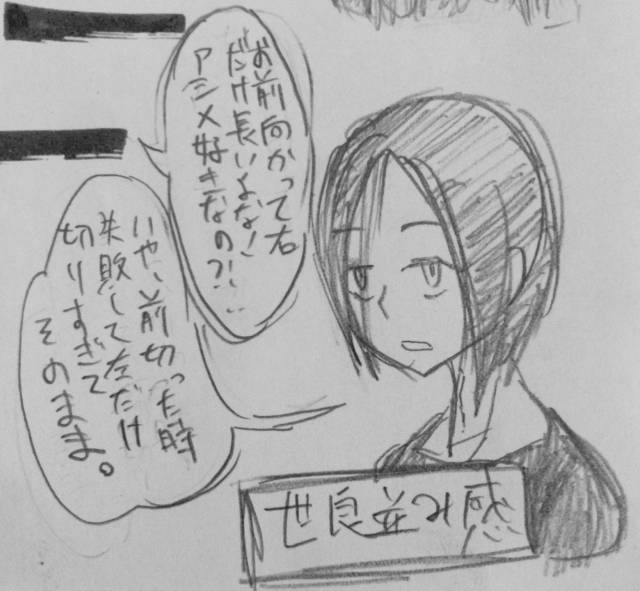 お前向かって右
だけ長いよな!
アシメ好きなの?!..
いや、前切った時
失敗して左だけ
切りすぎて
そのまま。
世良並れ感